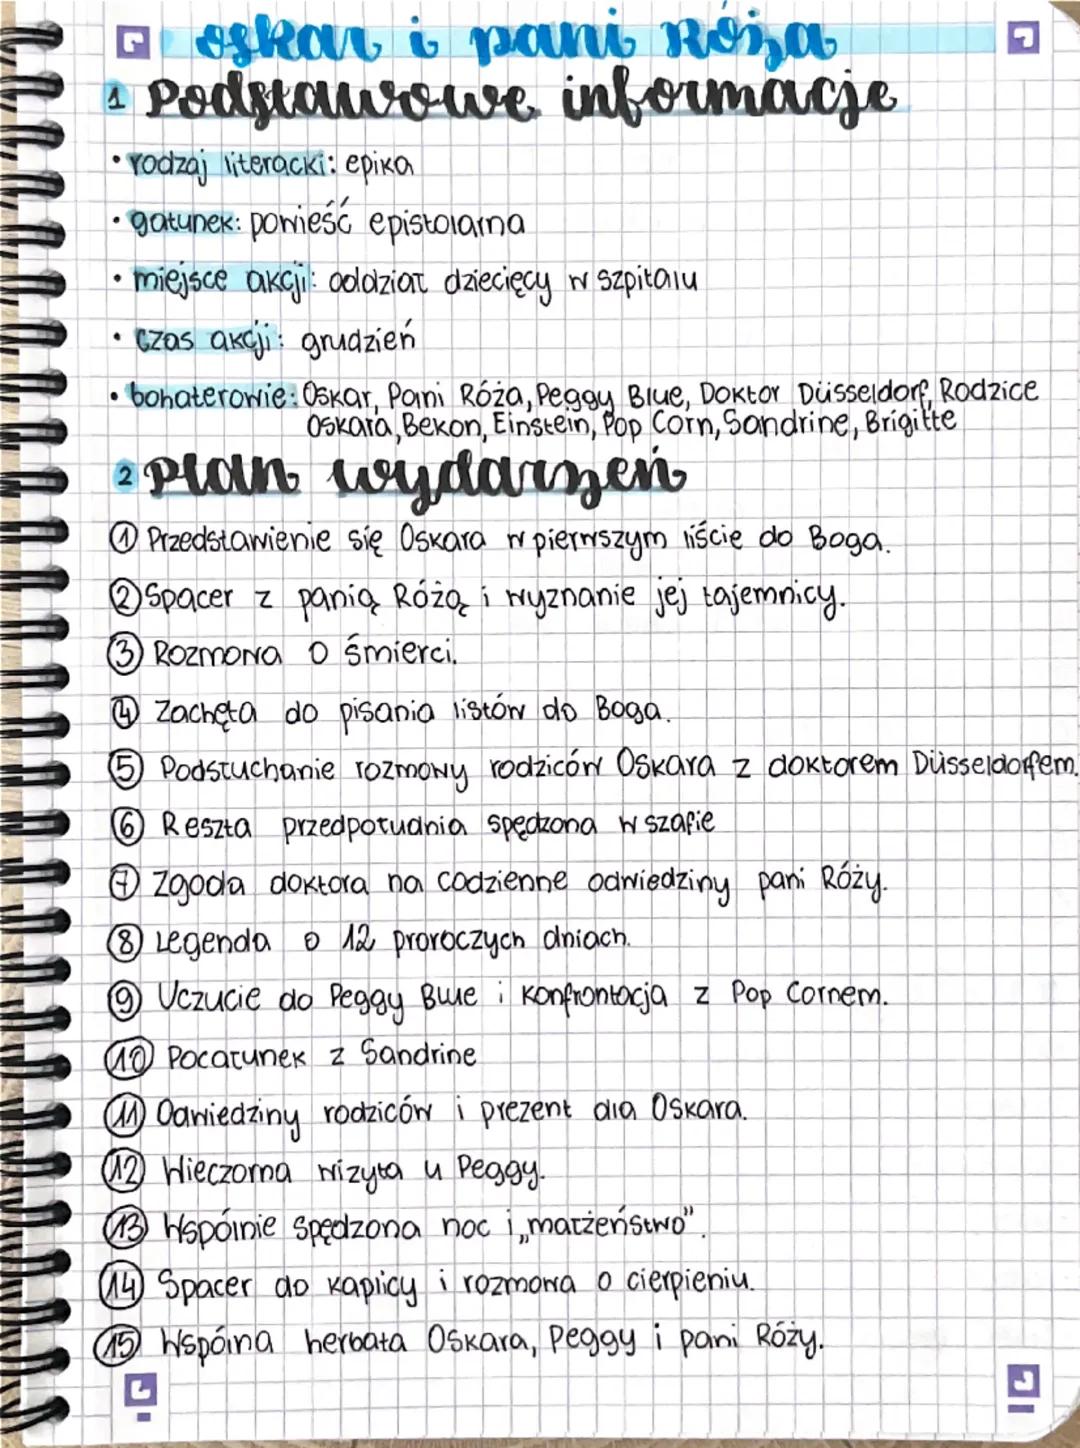 oskar i pani Róża
1 Podstawowe informacje
• rodzaj literacki: epika
• gatunek: powieść epistolarna
• miejsce akcji: oddział dziecięcy w szpitalu
• czas akcji: grudzień
• bohaterowie: Oskar, Pani Róża, Peggy Blue, Doktor Düsseldorf, Rodzice
Oskara, Bekon, Einstein, Pop Corn, Sandrine, Brigitte
2 Plan wydarzeń
1 Przedstawienie się Oskara w pierwszym liście do Boga.
2 Spacer z panią Różą i wyznanie jej tajemnicy.
3 Rozmowa o śmierci.
4 Zachęta do pisania listów do Boga.
5 Podsłuchanie rozmowy rodziców Oskara z doktorem Düsseldorfem.
6 Reszta przedpołudnia spędzona w szafie
7 Zgoda doktora na codzienne odwiedziny pani Róży.
8 Legenda o 12 proroczych dniach.
9 Uczucie do Peggy Blue i konfrontacja z Pop Cornem.
10 Pocałunek z Sandrine
11 Odwiedziny rodziców i prezent dla Oskara.
12 Wieczorna wizyta u Peggy.
13 Wspólnie spędzona noc i „małżeństwo".
14 Spacer do kaplicy i rozmowa o cierpieniu.
15 Wspólna herbata Oskara, Peggy i pani Róży.